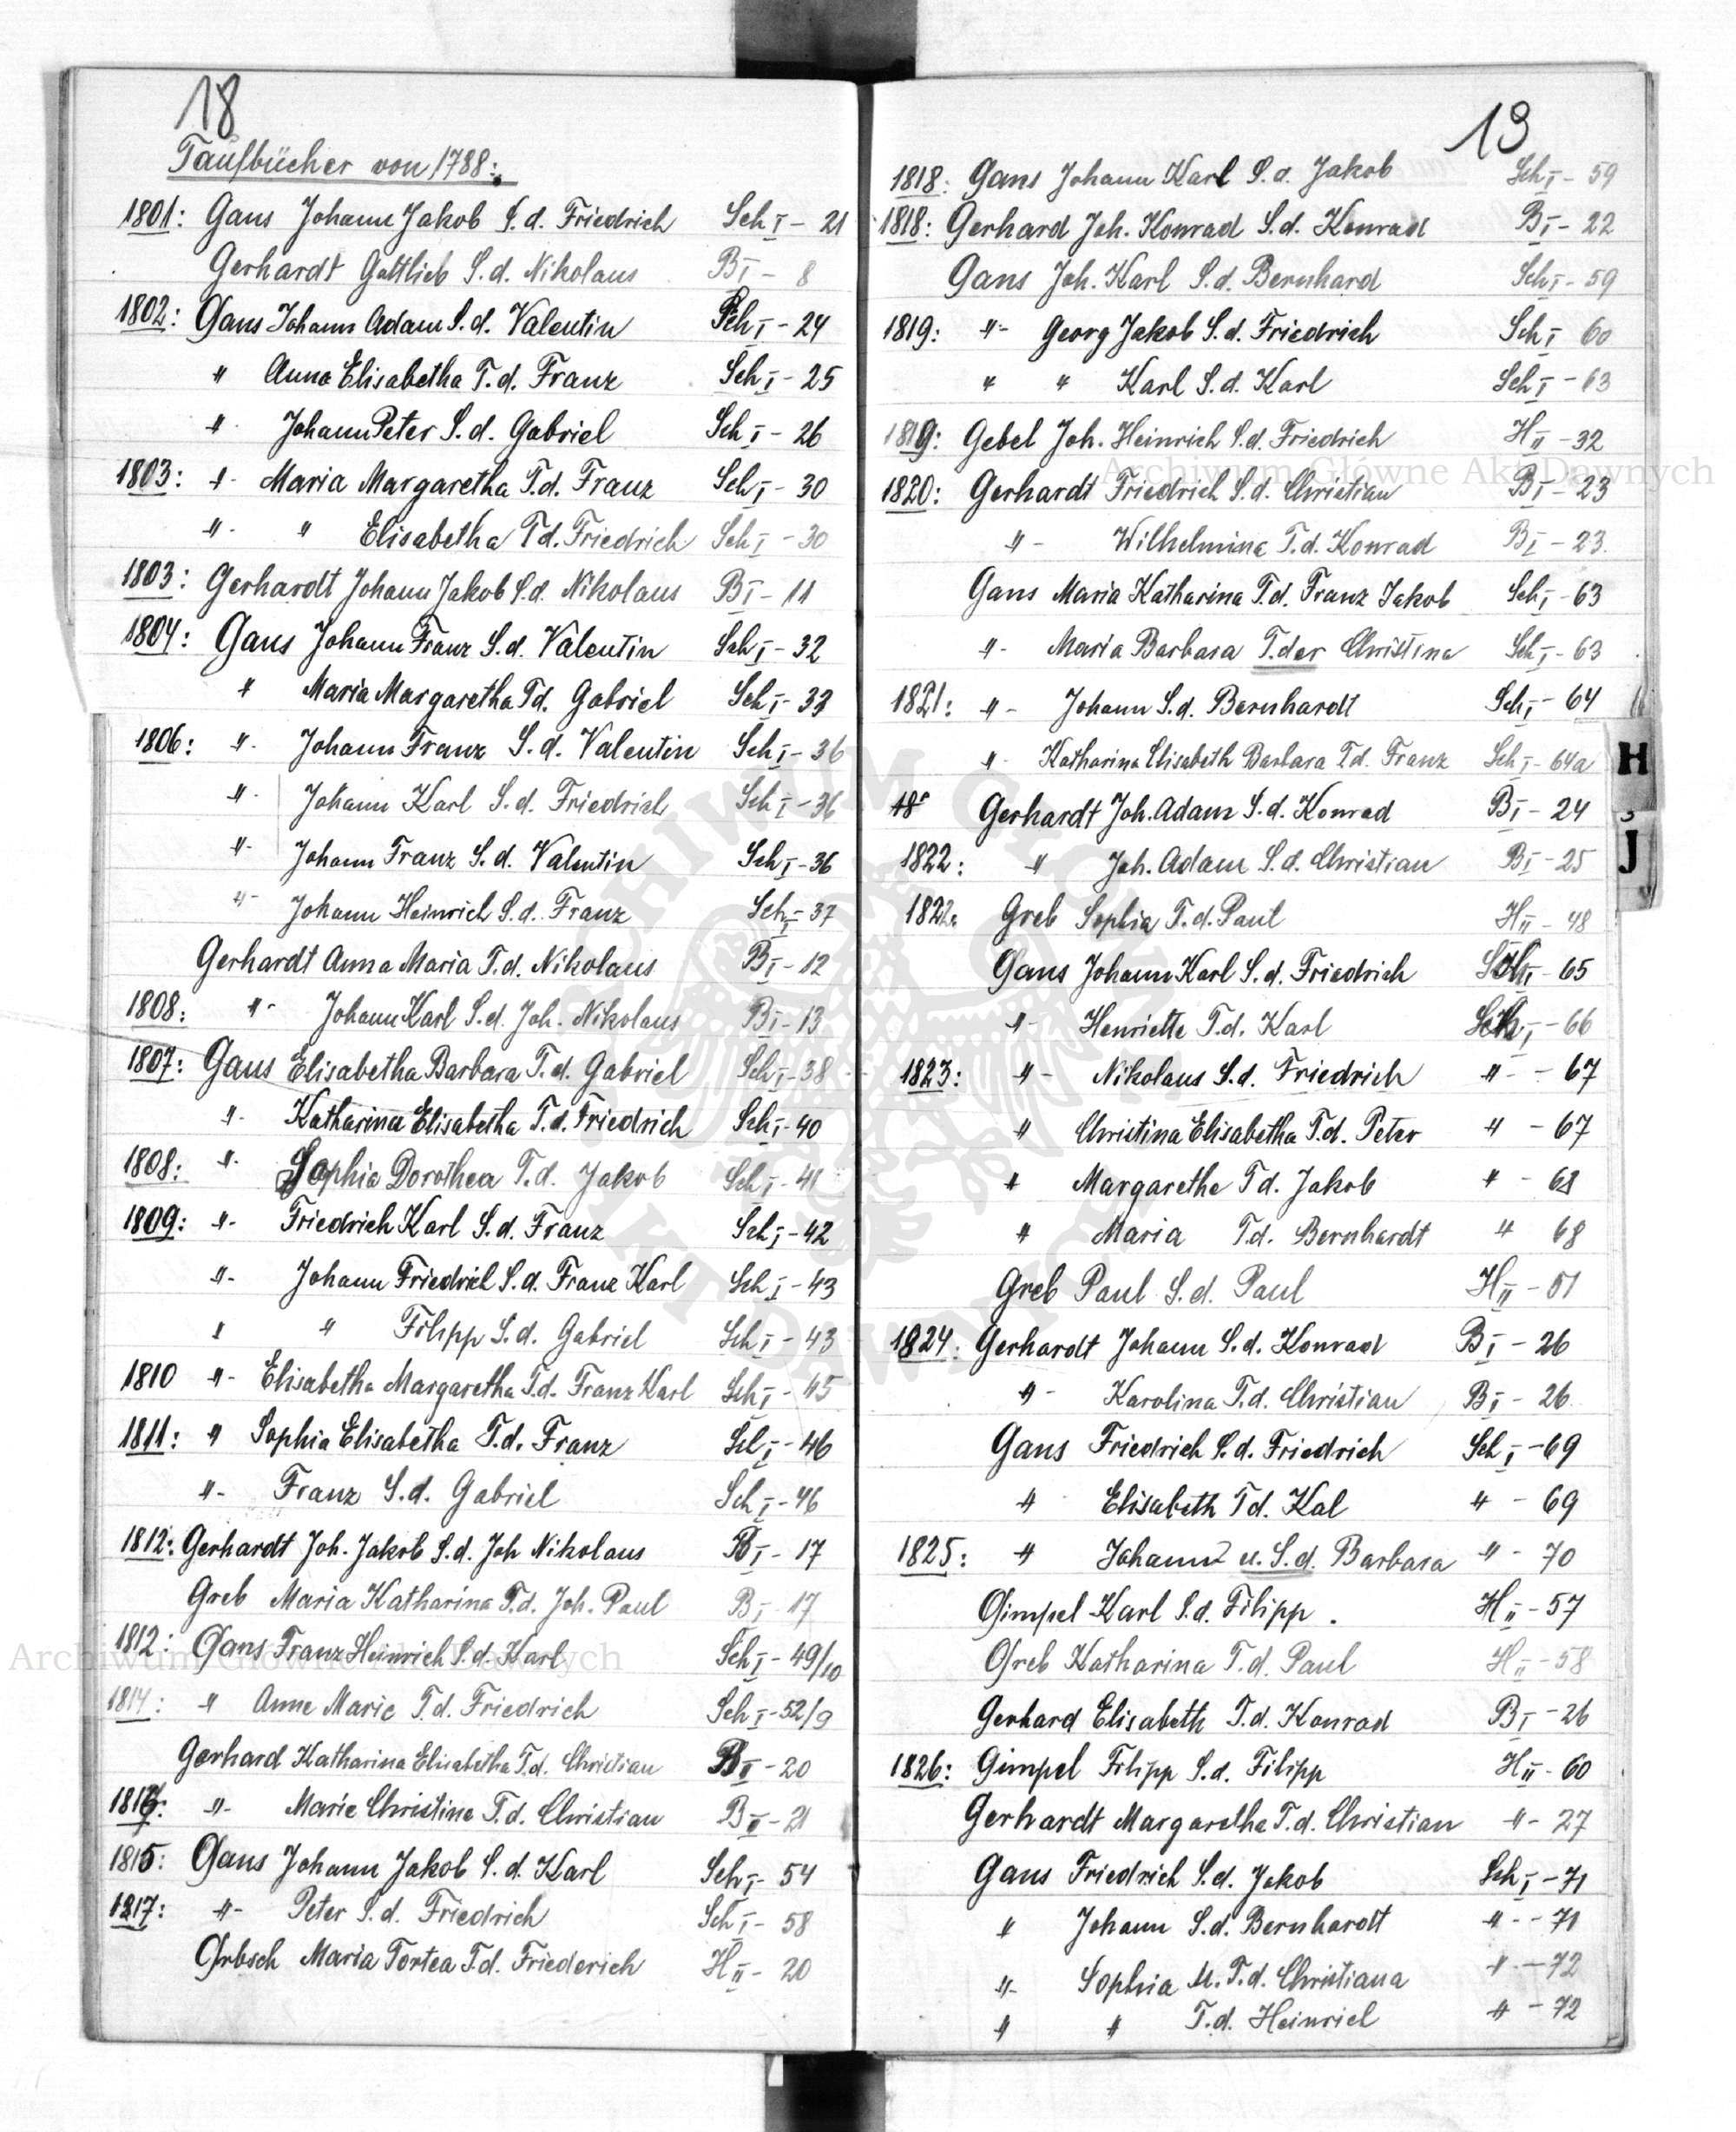 18
Taufbücher von 1788:
1801: Gans Johann Jakob S. d. Friedrich Sch I - 21
Gerhardt Gottlieb S. d. Nikolaus B I - 8
1802: Gans Johann Adam S. d. Valentin Sch I - 24
" Anna Elisabetha T. d. Franz Sch I - 25
" Johann Peter S. d. Gabriel Sch I - 26
1803: " Maria Margaretha T. d. Franz Sch I - 30
" " Elisabetha T. d. Friedrich Sch I - 30
1803: Gerhardt Johann Jakob S. d. Nikolaus B I - 11
1804: Gans Johann Franz S. d. Valentin Sch I - 32
" Maria Margaretha T. d. Gabriel Sch I - 33
1806: " Johann Franz S. d. Valentin Sch I - 36
" Johann Karl S. d. Friedrich Sch I - 36
" Johann Franz S. d. Valentin Sch I - 36
" Johann Heinrich S. d. Franz Sch I - 37
Gerhardt Anna Maria T. d. Nikolaus B I - 12
1808: " Johann Karl S. d. Joh. Nikolaus B I - 13
1807: Gans Elisabetha Barbara T. d. Gabriel Sch I - 38
" Katharina Elisabetha T. d. Friedrich Sch I - 40
1808: " Sophia Dorothea T. d. Jakob Sch I - 41
1809: " Friedrich Karl S. d. Franz Sch I - 42
" Johann Friedrich S. d. Franz Karl Sch I - 43
" " Filipp S. d. Gabriel Sch I - 43
1810 " Elisabetha Margaretha T. d. Franz Karl Sch I - 45
1811: " Sophia Elisabetha T. d. Franz Sch I - 46
" Franz S. d. Gabriel Sch I - 46
1812: Gerhardt Joh. Jakob S. d. Joh Nikolaus B I - 17
Greb Maria Katharina T. d. Joh. Paul B I - 17
1812: Gans Franz Heinrich S. d. Karl Sch I - 49/10
1814: " Anne Marie T. d. Friedrich Sch I - 52/9
Gerhard Katharina Elisabetha T. d. Christian B II - 20
" Marie Christine T. d. Christian B II - 21
1815: Gans Johann Jakob S. d. Karl Sch I - 54
1817: " Peter S. d. Friedrich Sch I - 58
Grbsch Maria Tortea T. d. Friederich H II - 20
19
1818: Gans Johann Karl S. d. Jakob Sch I - 59
1818: Gerhard Joh. Konrad S. d. Konrad B I - 22
Gans Joh. Karl S. d. Bernhard Sch I - 59
1819: " Georg Jakob S. d. Friedrich Sch I 60
" " Karl S. d. Karl Sch I - 63
1819: Gebel Joh. Heinrich S. d. Friedrich H II - 32
Archiwum Główne Akt Dawnych
1820: Gerhardt Friedrich S. d. Christian B I - 23
" Wilhelmina T. d. Konrad B I - 23.
Gans Maria Katharina T. d. Franz Jakob Sch I - 63
" Maria Barbara T. der Christina Sch I - 63
1821: " Johann S. d. Bernhardt Sch I - 64
" Katharina Elisabeth Barbara T. d. Franz Sch I - 64a
H
18 Gerhardt Joh. Adam S. d. Konrad B I - 24
J
1822: " Joh. Adam S. d. Christian B I - 25
1822. Greb Sophia T. d. Paul H II - 48
Gans Johann Karl S. d. Friedrich Sch I - 65
" Henriette T. d. Karl Sch I - 66
1823: " Nikolaus S. d. Friedrich " - 67
" Christina Elisabetha T. d. Peter " - 67
" Margarethe T d. Jakob " - 68
" Maria T. d. Bernhardt " 68
Greb Paul S. d. Paul H II - 51
1824: Gerhardt Johann S. d. Konrad B I - 26
" Karolina T. d. Christian B I - 26
Gans Friedrich S. d. Friedrich Sch I - 69
" Elisabeth T d. Kal " - 69
1825: " Johann u. S. d. Barbara " - 70
Gimpel Karl S. d. Filipp . H II - 57
Greb Katharina T. d. Paul H II - 58
Gerhard Elisabeth T. d. Konrad B I - 26
1826: Gimpel Filipp S. d. Filipp H II - 60
Gerhardt Margaretha T. d. Christian " - 27
Gans Friedrich S. d. Jakob Sch I - 71
" Johann S. d. Bernhardt " - 71
" Sophia M. T. d. Christiana " - 72
" " T. d. Heinrich " - 72
Archiwum Główne Akt Dawnych
ARCHIWUM GŁÓWNE AKT DAWNYCH